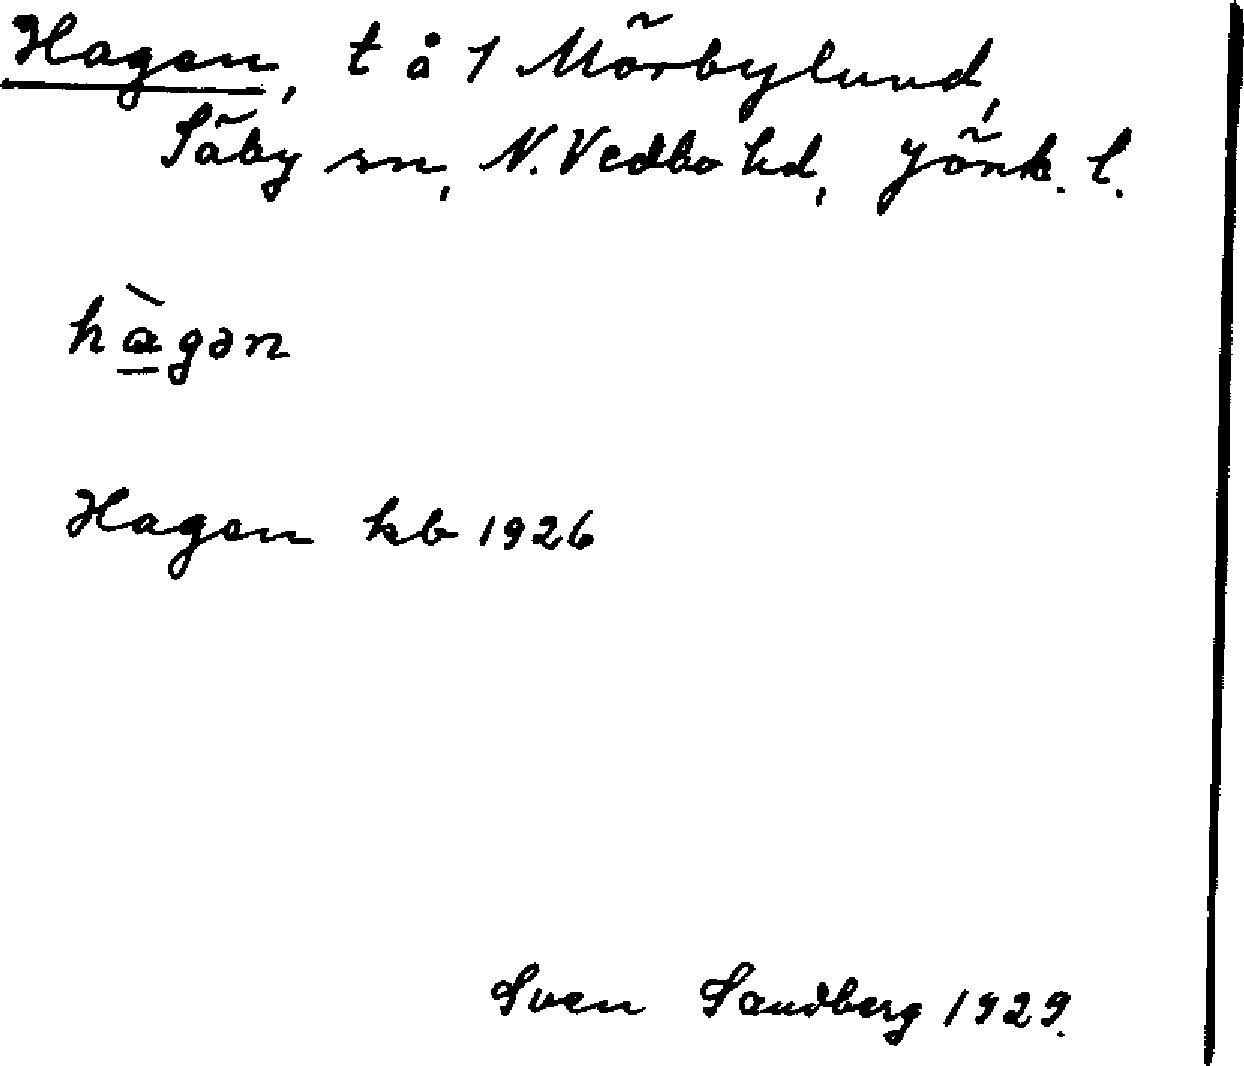 Hagen, t å 1 Mörbylund,
Säby sn, N. Vedbo hd, Jönk. l.
hàgən
Hagen kb 1926
Sven Sandberg 1929.